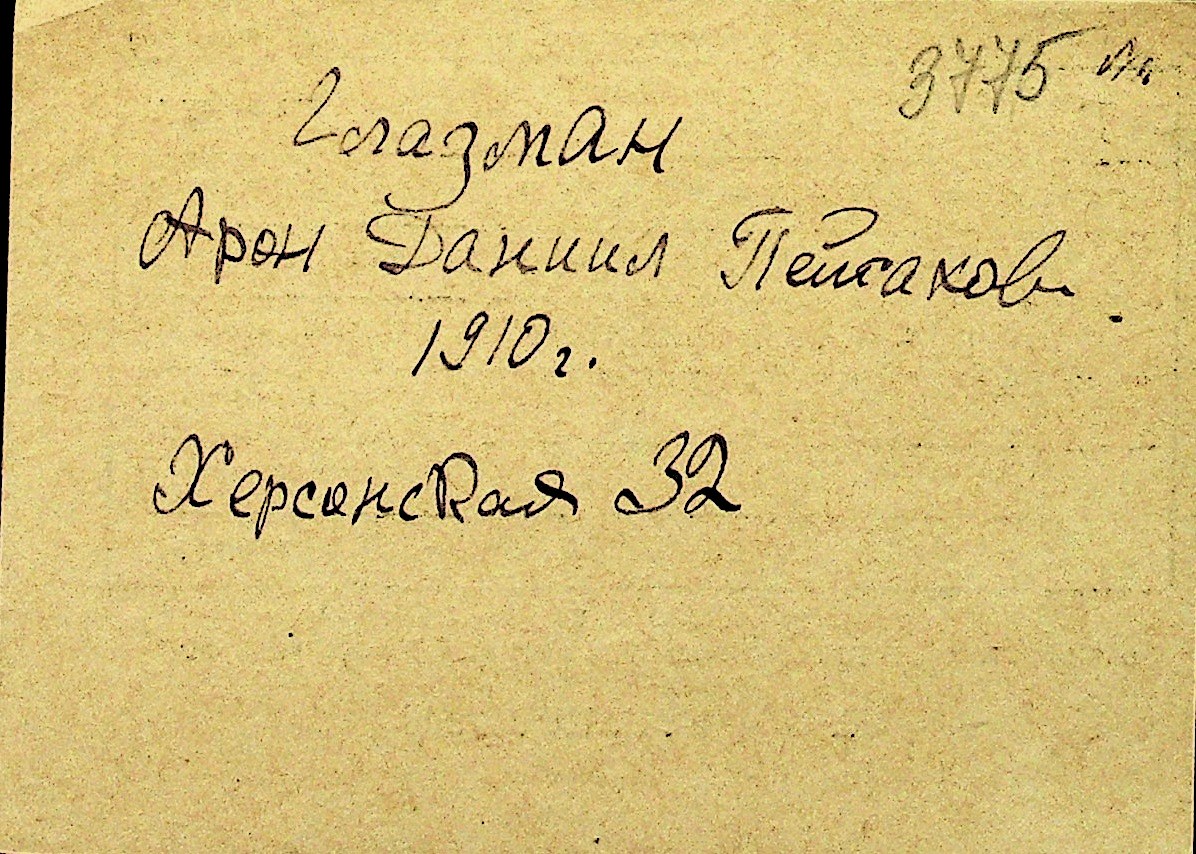 3775
Глазман
Арон Даниил Пейсахов.
1910 г.
Херсонская 32